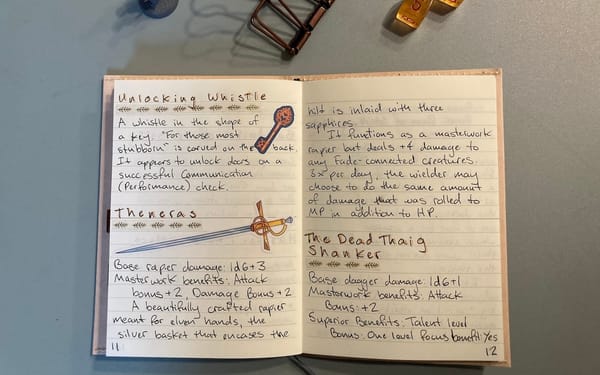 Unlocking Whistle
A whistle in the shape of
a key. "For those most
stubborn" is carved on the back.
It appears to unlock doors on a
successful Communication
(Performance) check.
Theneras
Base rapier damage: 1d6+3
Masterwork benefits: Attack
bonus +2, Damage Bonus +2
A beautifully crafted rapier
meant for elven hands, the
silver basket that encases the
11
hilt is inlaid with three
sapphires.
It functions as a masterwork
rapier but deals +4 damage to
any Fade-connected creatures.
3x per day, the wielder may
choose to do the same amount
of damage that was rolled to
MP in addition to HP.
The Dead Thaig
Shanker
Base dagger damage: 1d6+1
Masterwork benefits: Attack
Bonus: +2
Superior Benefits: Talent level
Bonus: One level focus benefit: Yes
12